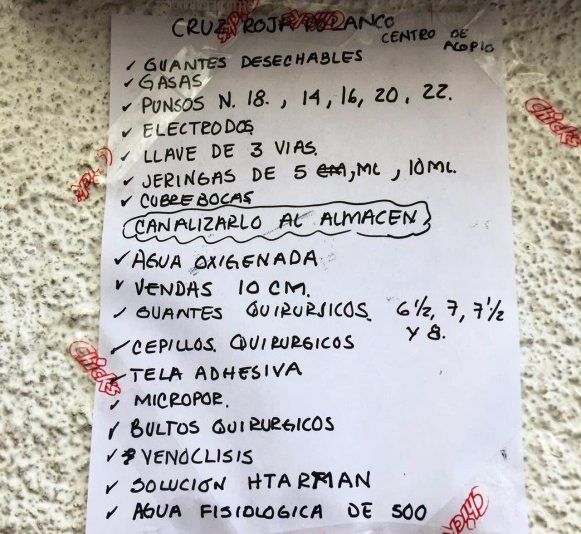 CRUZ ROJA POLANCO
CENTRO DE
ACOPIO
✓ GUANTES DESECHABLES
✓ GASAS
✓ PUNSOS N. 18. , 14, 16, 20, 22.
✓ ELECTRODOS
✓ LLAVE DE 3 VIAS.
✓ JERINGAS DE 5 CM, ML , 10 ML.
✓ CUBREBOCAS
CANALIZARLO AL ALMACEN
✓ AGUA OXIGENADA
✓ VENDAS 10 CM.
✓ GUANTES QUIRURSICOS. 6 1/2, 7, 7 1/2
Y 8.
✓ CEPILLOS QUIRURGICOS
✓ TELA ADHESIVA
✓ MICROPOR.
✓ BULTOS QUIRURGICOS
✓ VENOCLISIS
✓ SOLUCION HTARMAN
✓ AGUA FISIOLOGICA DE 500
Chicks
Chicks